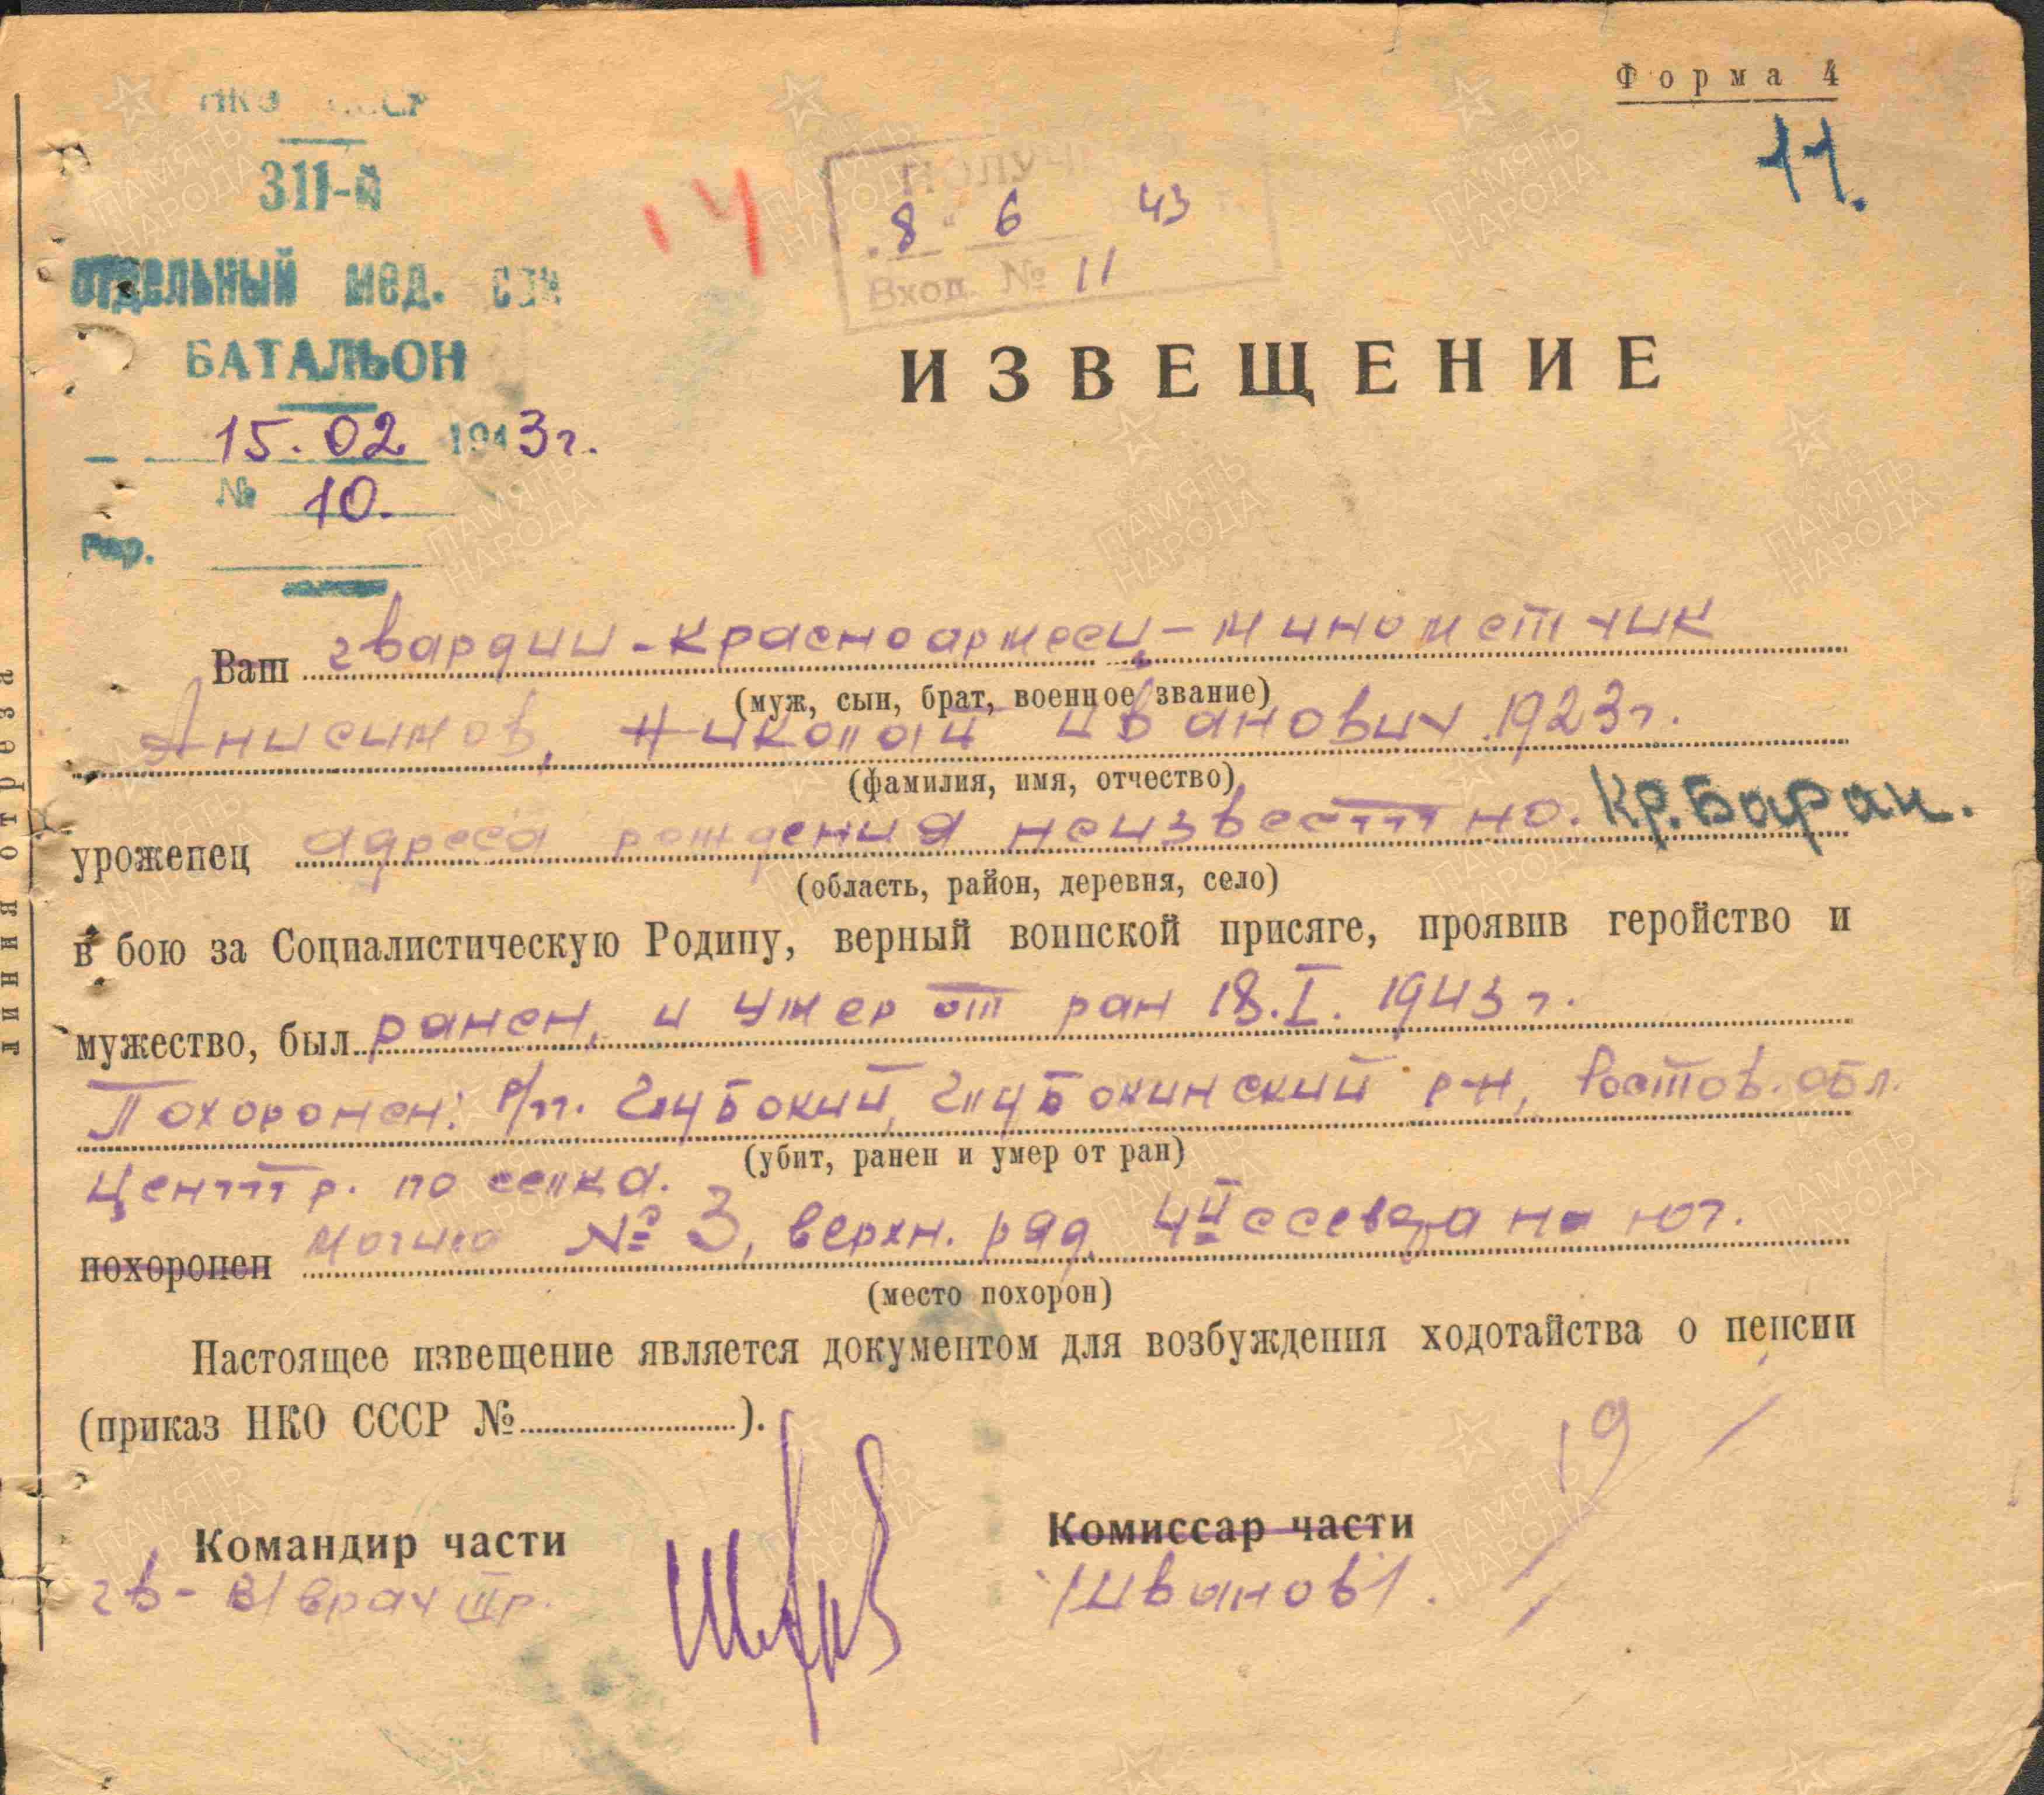 Форма 4
11.
НКО СССР
311-й
ОТДЕЛЬНЫЙ мед. сан
БАТАЛЬОН
15.02 1943г.
№ 10.
гор.
ПОЛУЧ
"8" 6 43
Вход. № 11
ИЗВЕЩЕНИЕ
Ваш гвардии-красноармеец-минометчик
(муж, сын, брат, военное звание)
Анисимов, Николай Иванович 1923г.
(фамилия, имя, отчество)
уроженец адреса рождения неизвестно. Кр. Баран.
(область, район, деревня, село)
в бою за Социалистическую Родину, верный воинской присяге, проявив геройство и
мужество, был ранен, и умер от ран 18.I.1943г.
Похоронен: р/п. Глубокий, Глубокинский р-н, Ростов. обл.
(убит, ранен и умер от ран)
центр. поселка.
похоронен могила № 3, верхн. ряд, 4й с севера на юг.
(место похорон)
Настоящее извещение является документом для возбуждения ходотайства о пенсии
(приказ НКО СССР № ).
19
Командир части
Комиссар части
гв-в/врач IIIр.
/Иванов/.
линия отреза
ПАМЯТЬ НАРОДА